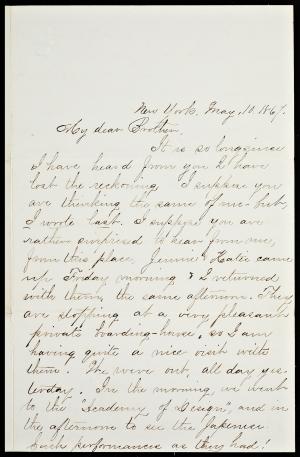 New York, May, 10. 1867.
My dear Brother,
It is so long since
I have heard from you I have
lost the reckoning. I suppose you
are thinking the same of me - but,
I wrote last. I suppose you are
rather surprised to hear from me,
from this place. Jennie & Katie came
up, Friday morning & I returned
with them, the same afternoon. They
are stopping at a very pleasant
private boarding-house, so I am
having quite a nice visit with
them. We were out, all day yes-
terday. In the morning, we went
to the "Academy of Design", and in
the afternoon to see the Japanese.
Such performances as they had!